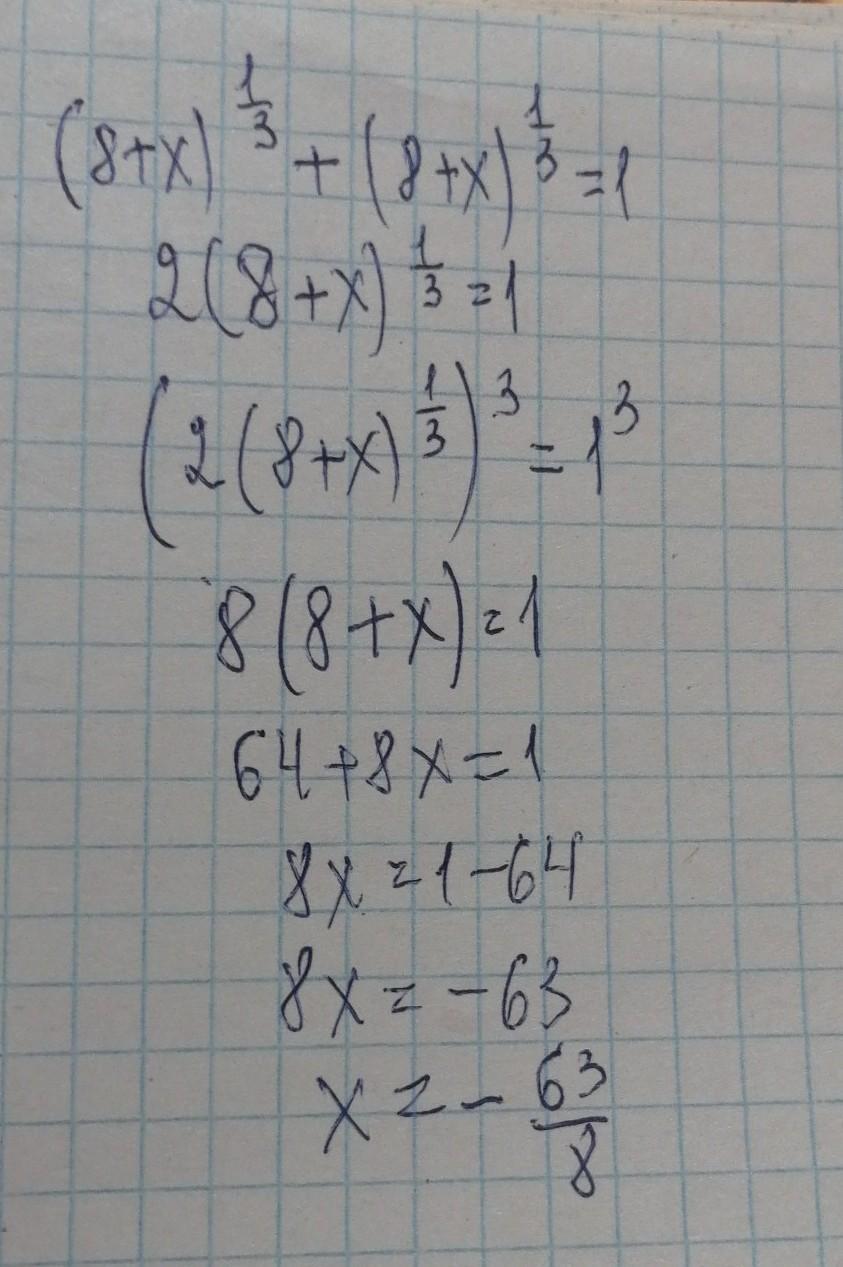 (8+x)^(1/3) + (8+x)^(1/3) = 1
2(8+x)^(1/3) = 1
(2(8+x)^(1/3))^3 = 1^3
8(8+x) = 1
64+8x = 1
8x = 1-64
8x = -63
x = - 63/8